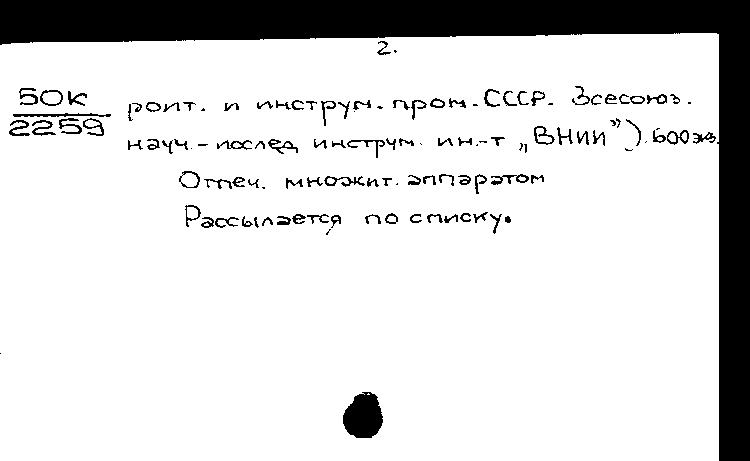 2.
50К
2259
роит. и инструм. пром. СССР. Всесоюз.
науч.-послед инструм. ин.-т „ВНИИ”). 600 экз.
Отпеч. множит. аппаратом
Рассылается по списку.